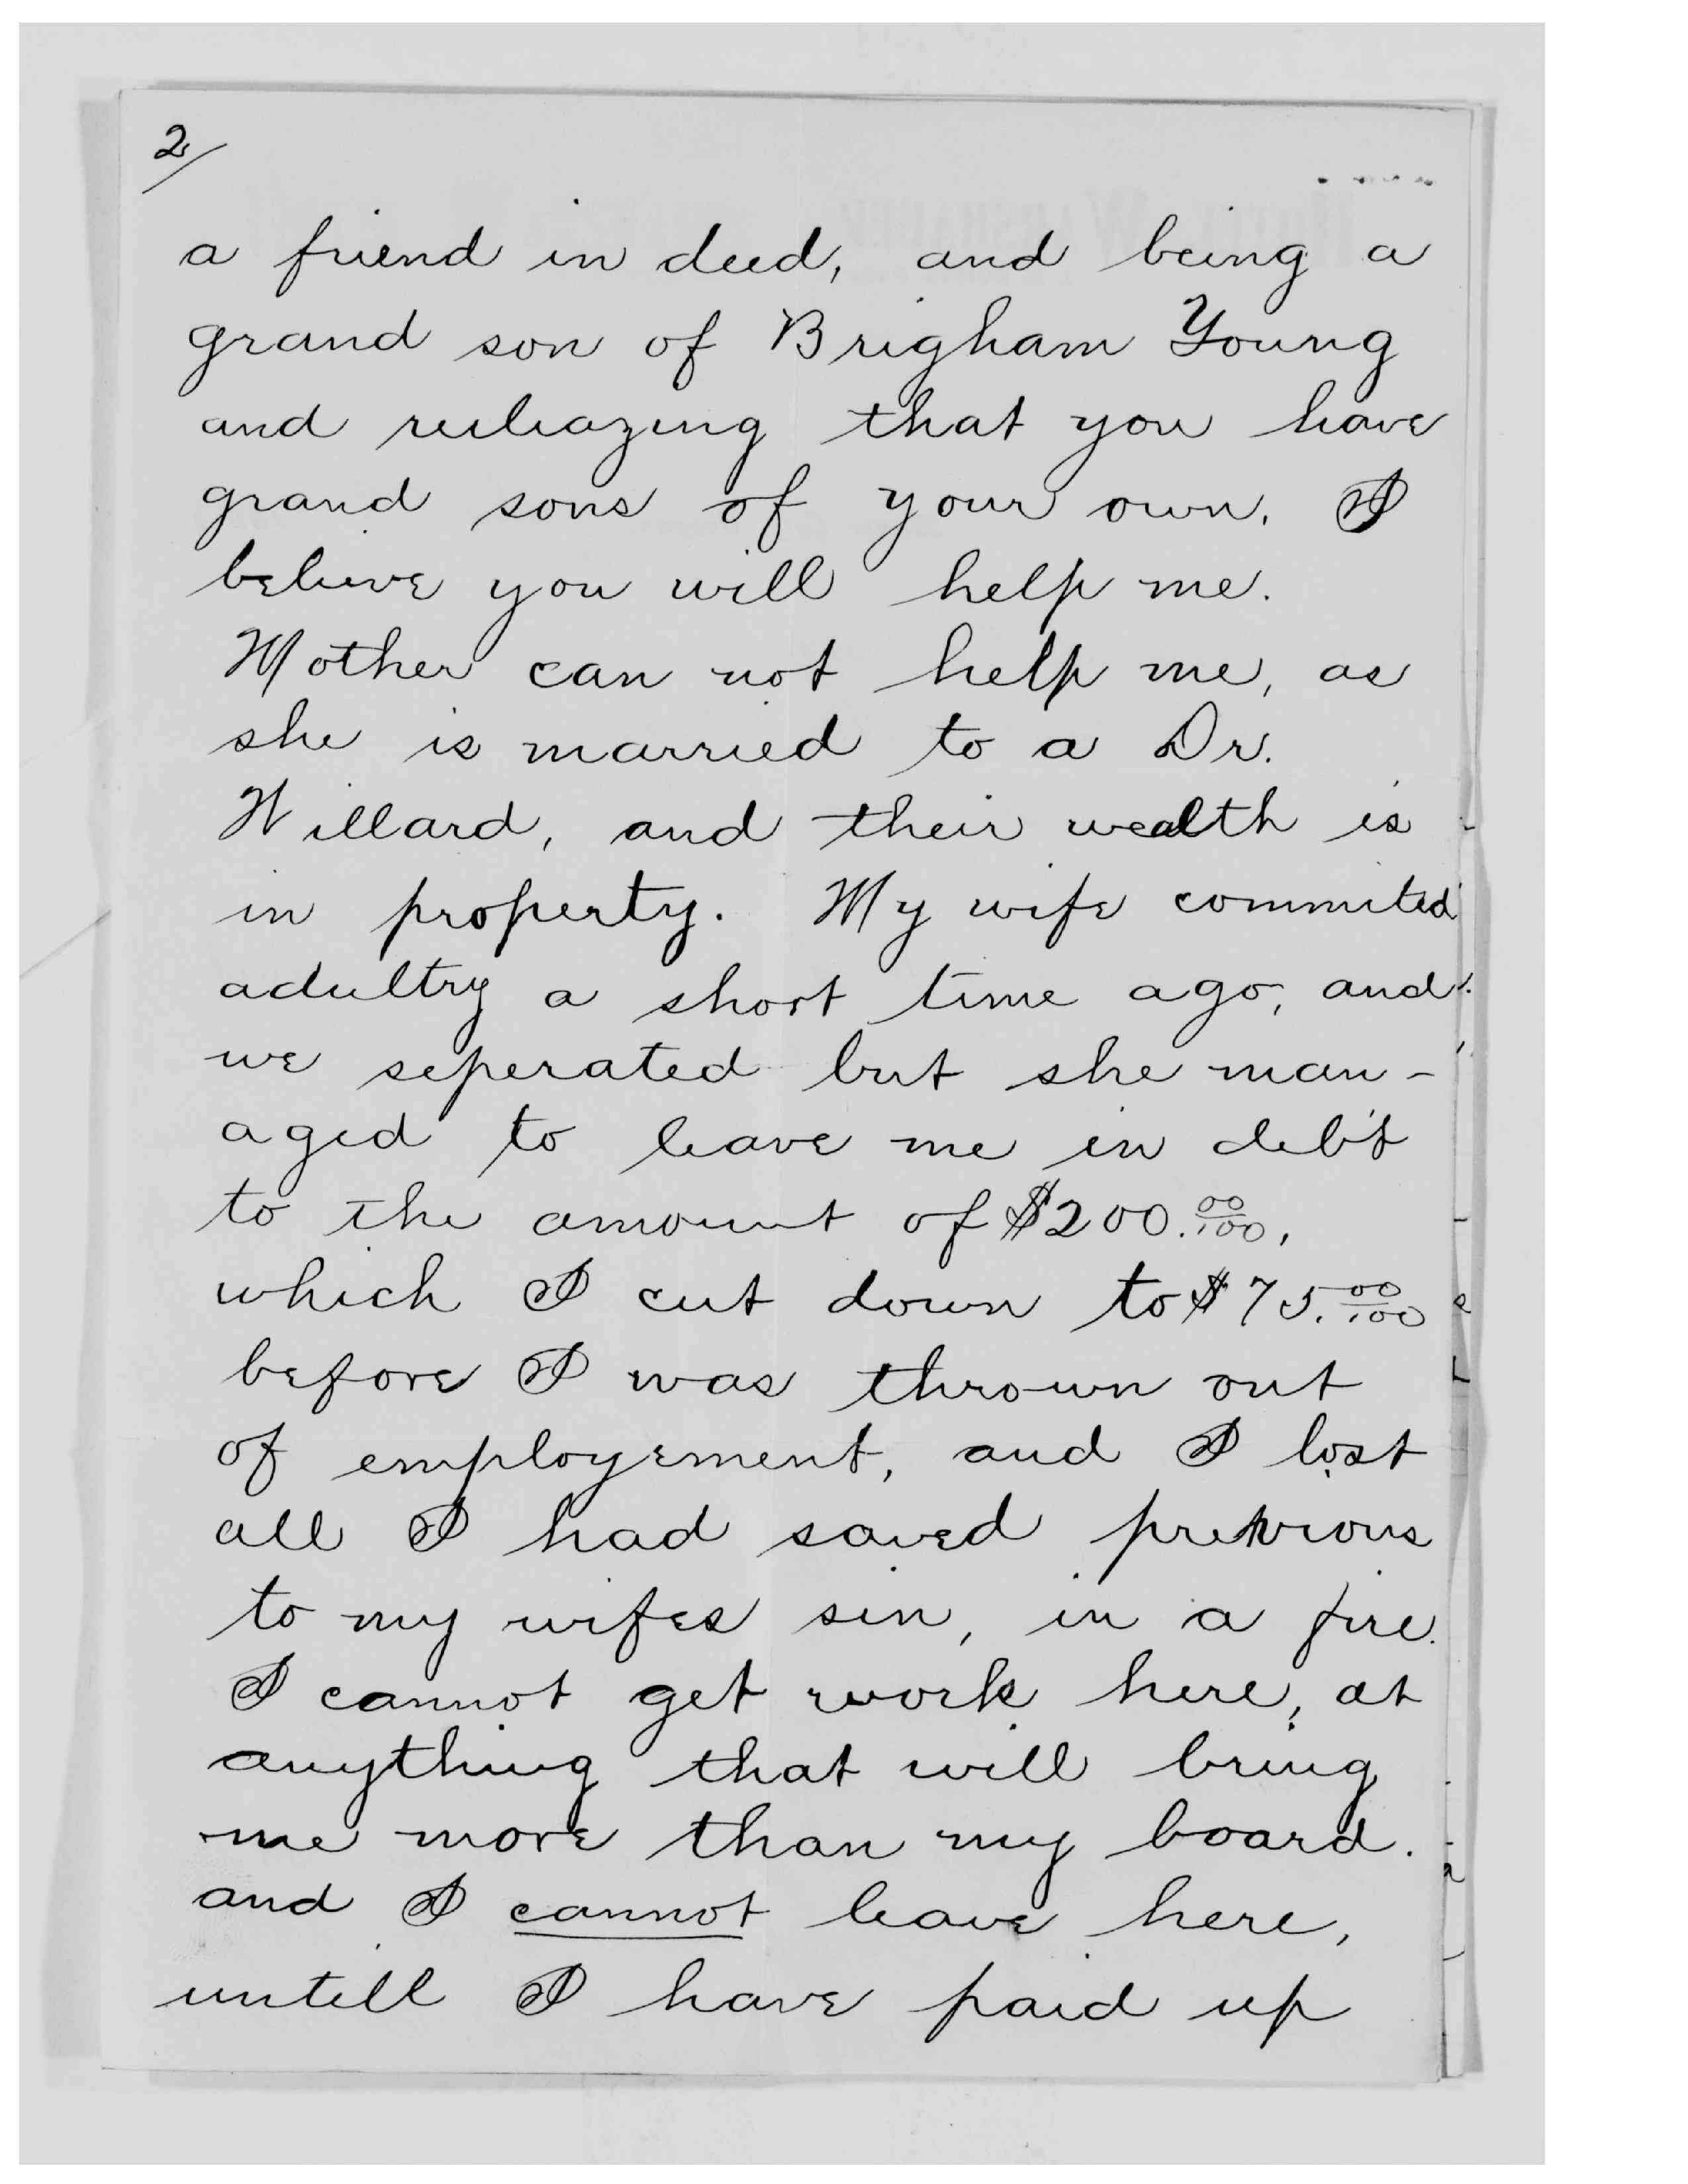 2/
a friend in deed, and being a
grand son of Brigham Young
and reeleazing that you have
grand sons of your own. I
believe you will help me.
Mother can not help me, as
she is married to a Dr.
Willard, and their wealth is
in property. My wife commited
adultry a short time ago, and
we seperated but she man-
aged to leave me in debt
to the amount of $200.00/100,
which I cut down to $75.00/100
before I was thrown out
of employement, and I lost
all I had saved previous
to my wifes sin, in a fire.
I cannot get work here, at
anything that will bring
me more than my board.
and I cannot leave here,
untill I have paid up